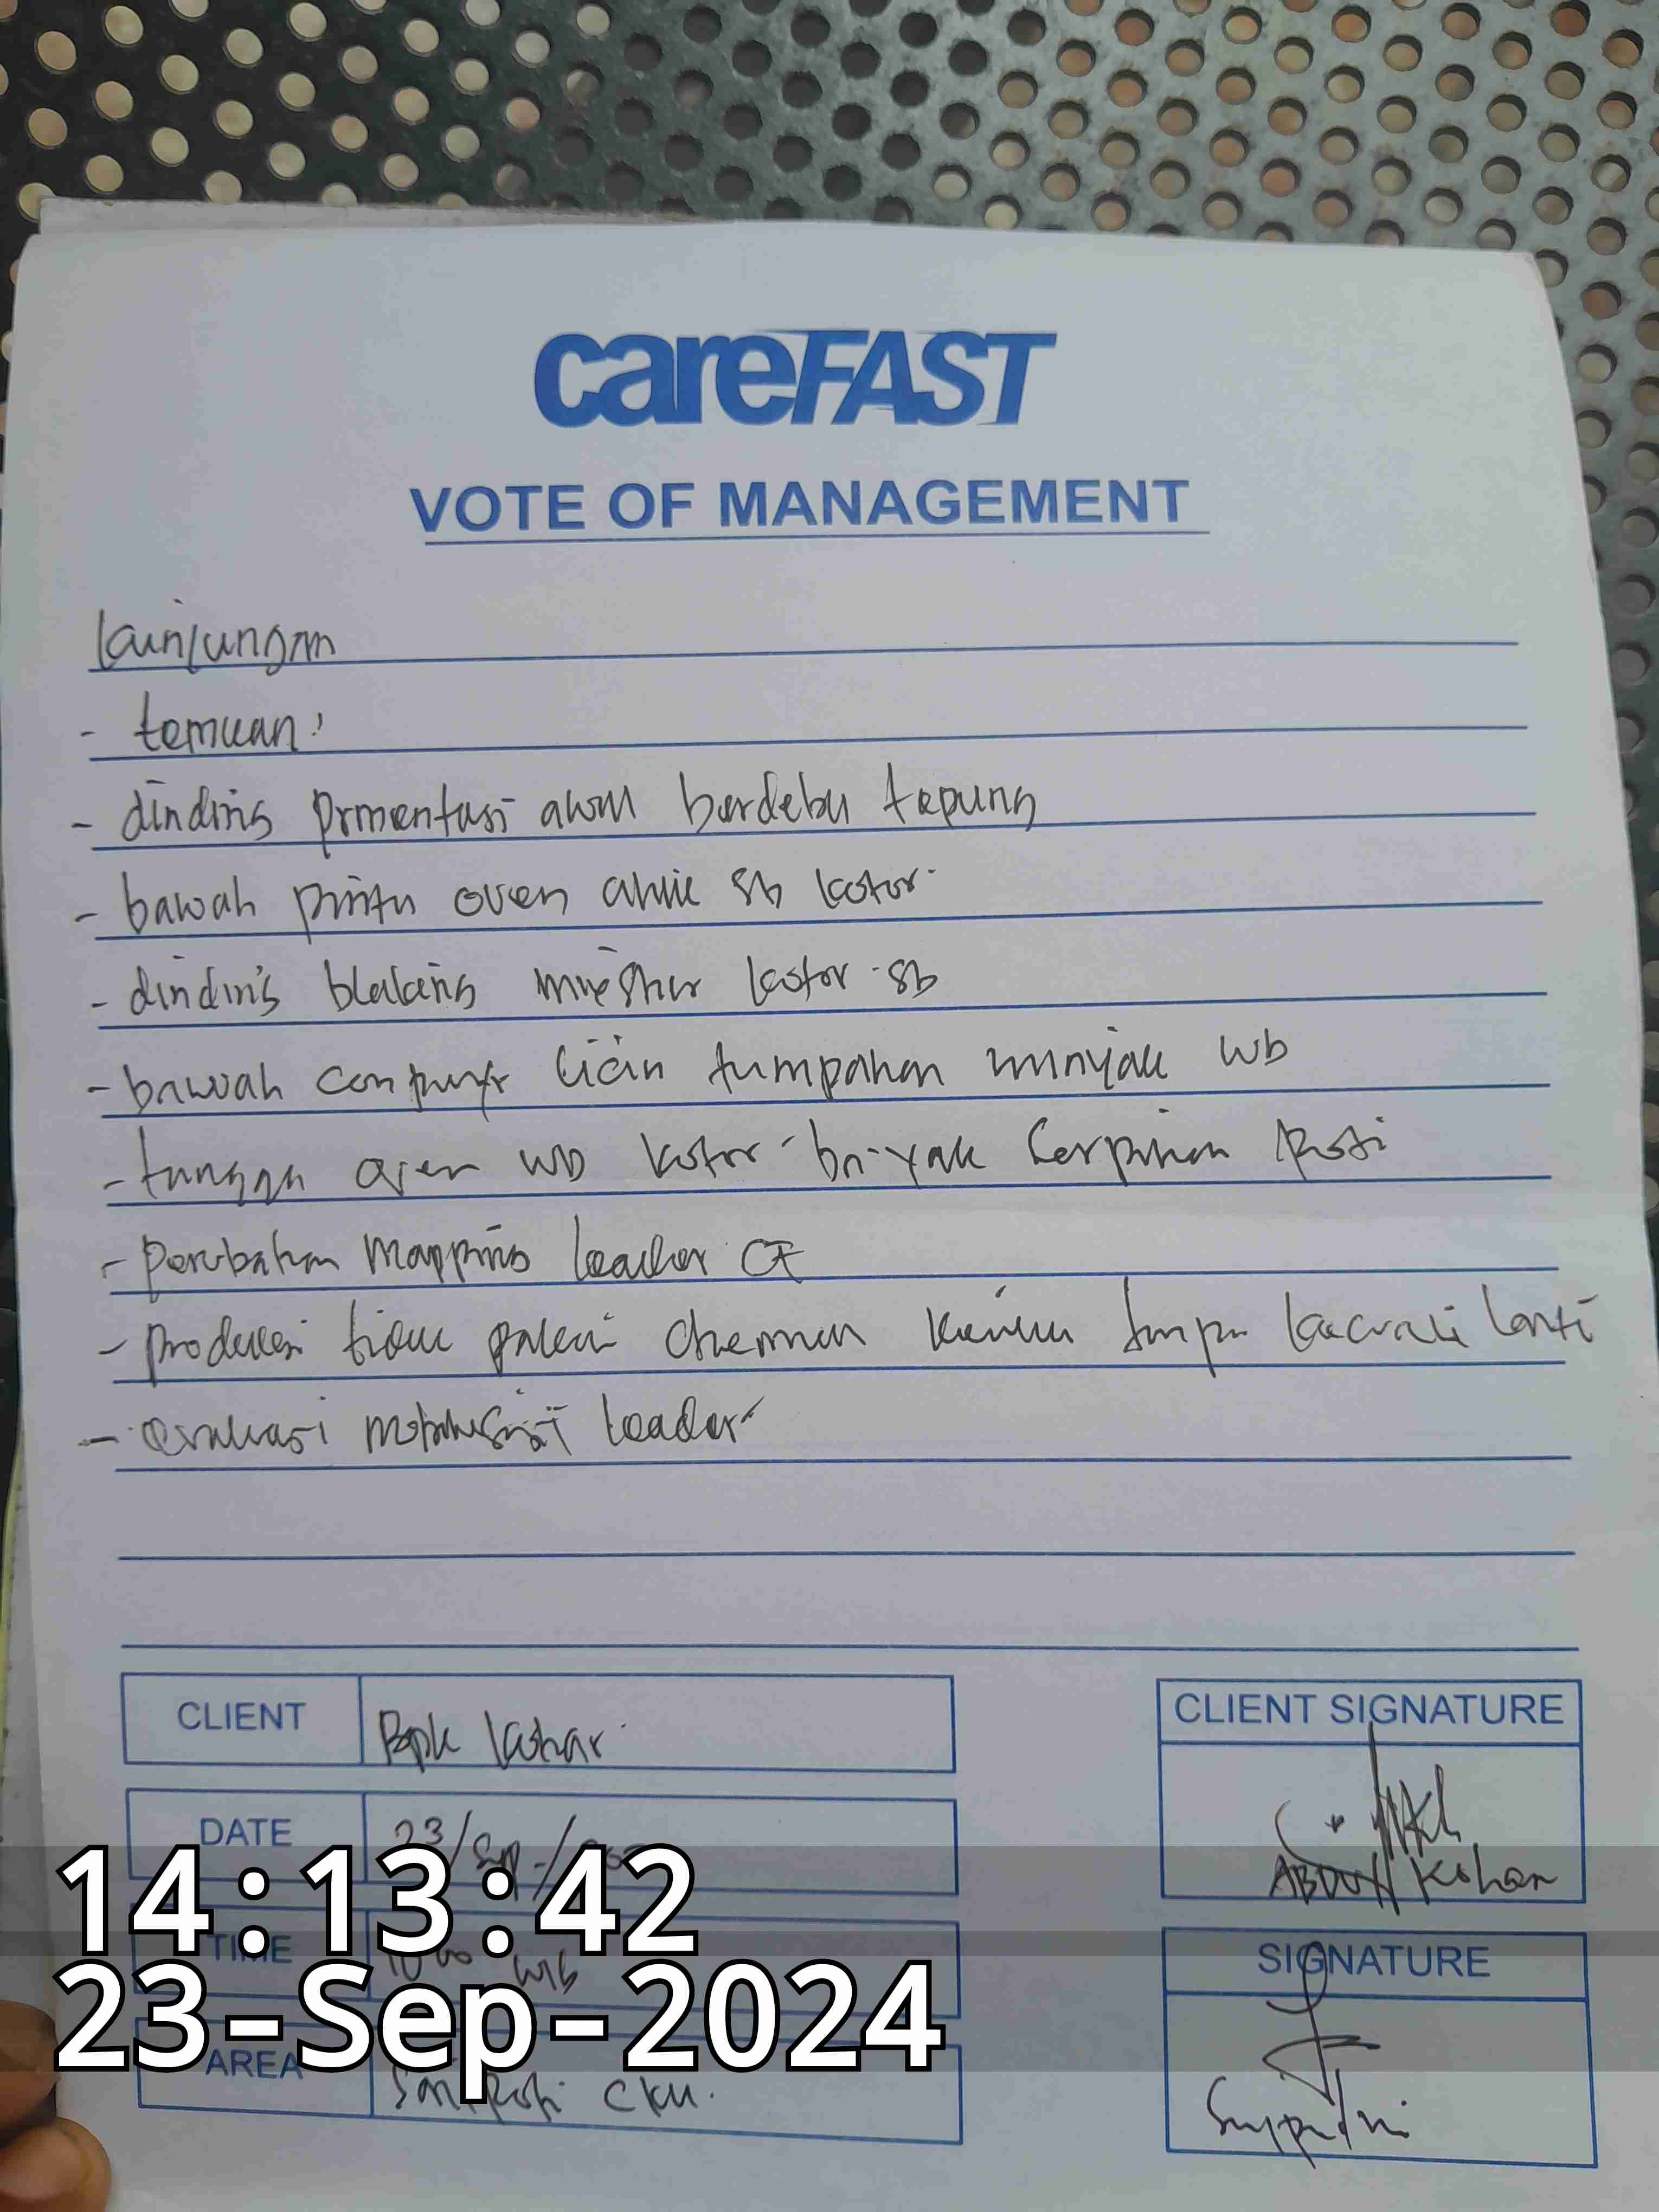 careFAST
VOTE OF MANAGEMENT
kunjungan
- temuan :
- dinding prmentasi awal berdebu tepung
- bawah pintu oven SB kotor.
- dinding blakang kotor SB
- bawah licin tumpahan minyak WB
- tangga oven WB kotor banyak serpihan Roti
- perubahan mapping leader CF
- produksi tidak pakai chemical kecuali lantai
- evaluasi leader
CLIENT Bpk Kohar
CLIENT SIGNATURE
ABDUL Kohar
DATE 23/Sep
TIME WIB
AREA Sari Roti CKU.
SIGNATURE
14:13:42
23-Sep-2024